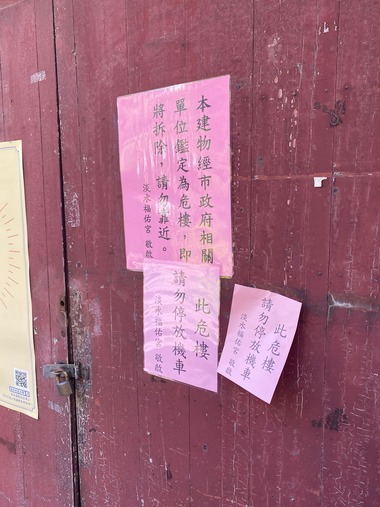 本建物經市政府相關
單位鑑定為危樓，即
將拆除，請勿靠近。
淡水福佑宮 敬啟
此危樓
請勿停放機車
淡水福佑宮 敬啟
此危樓
請勿停放機車
淡水福佑宮 敬啟